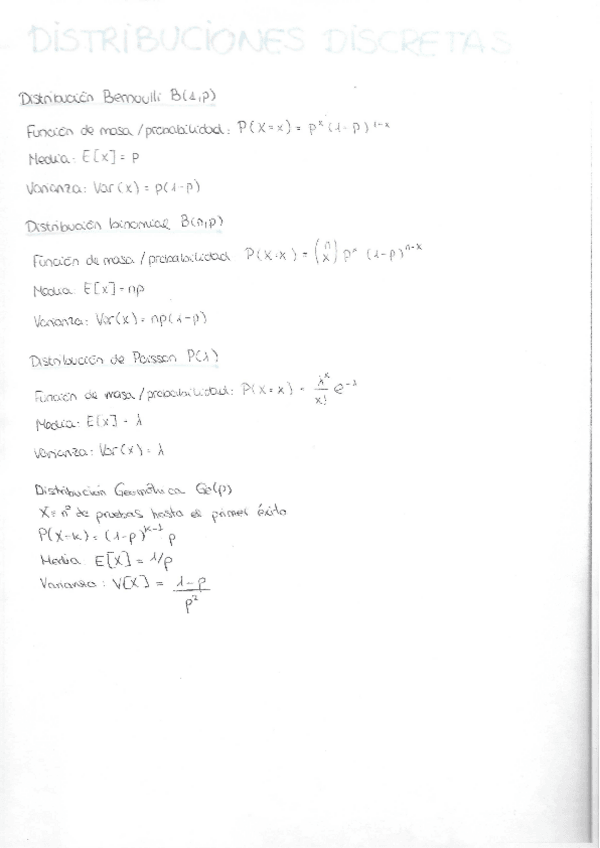 DISTRIBUCIONES DISCRETAS
Distribución Bernoulli B(1,p)
Función de masa/probabilidad: P(X=x) = pˣ (1-p)¹⁻ˣ
Media: E[x] = p
Varianza: Var(x) = p(1-p)
Distribución binomial B(n,p)
Función de masa/probabilidad P(X=x) = (n x) pˣ (1-p)ⁿ⁻ˣ
Media E[x] = np
Varianza: Var(x) = np(1-p)
Distribución de Poisson P(λ)
Función de masa/probabilidad: P(X=x) = λˣ/x! e^-λ
Media: E[x] = λ
Varianza: Var(x) = λ
Distribución Geométrica Ge(p)
X = nº de pruebas hasta el primer éxito
P(X=k) = (1-p)ᵏ⁻¹ p
Media E[X] = 1/p
Varianza: V[X] = 1-p / p²